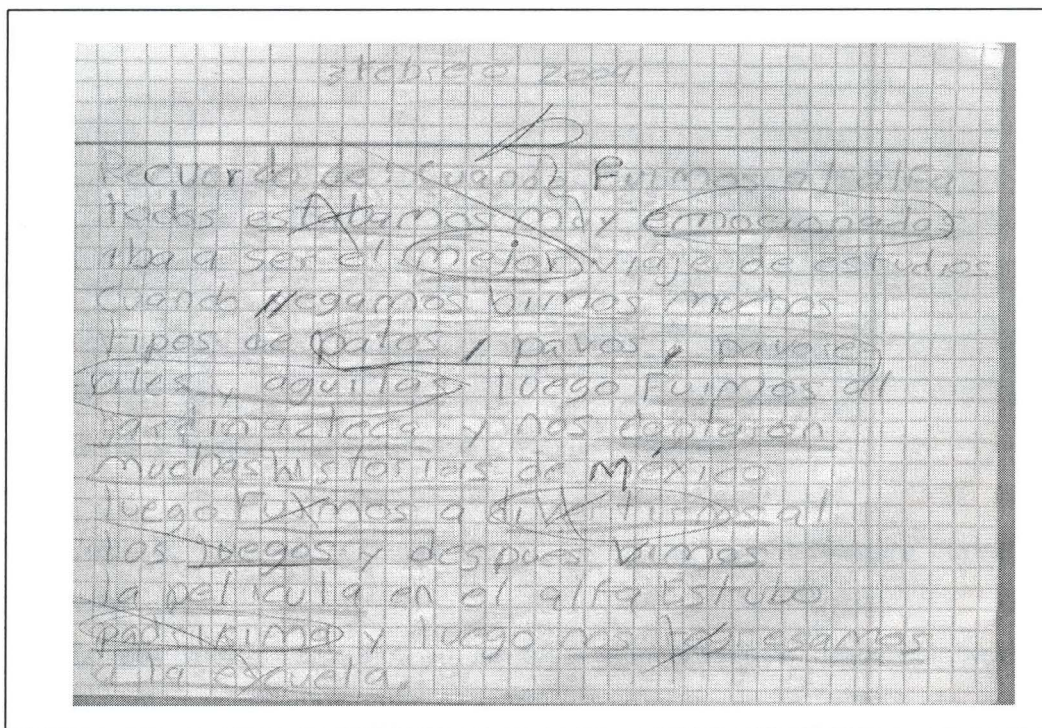 3 Febrero 2009
Recuerdo de: Cuando Fuimos al alfa
todos estabamos muy emocionados
iba a ser el mejor viaje de estudios
cuando llegamos bimos muchos
tipos de patos, pavos, pavore
ales y aguilas luego Fuimos al
jardin azteca y nos contaron
muchas historias de México
luego Fuimos a divertirnos al
los juegos y despues vimos
la pelicula en el alfa Estubo
padrisimo y luego nos regresamos
a la escuela.